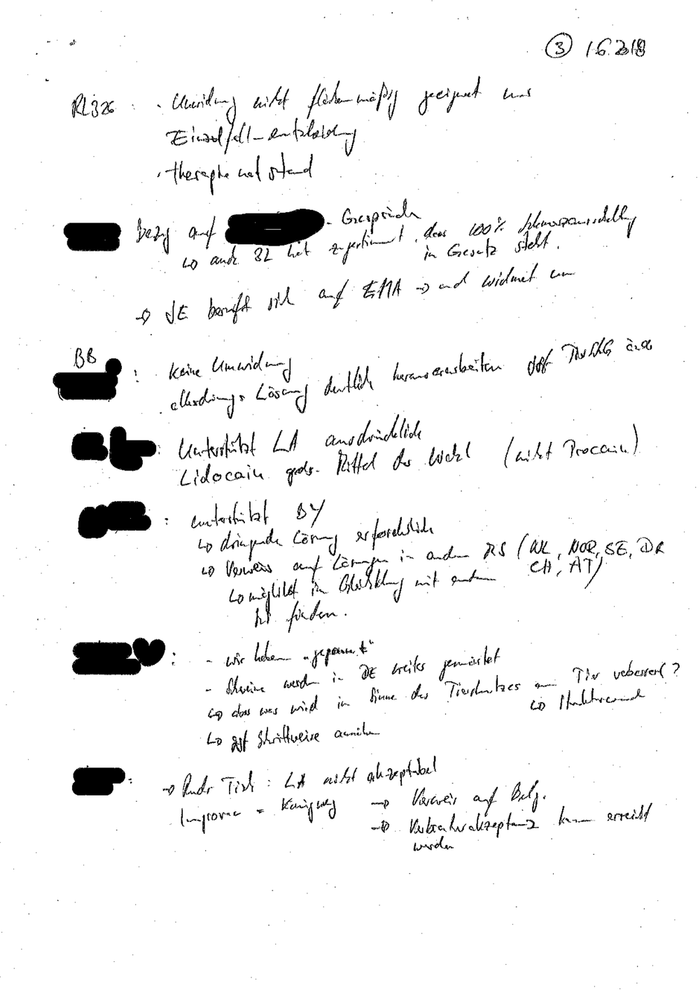 ③ 1.6.2018
RL326: · Umwidmung nicht flächenmäßig geeignet nur
Einzelfall-entscheidung
· therapienotstand
Bezug auf - Gespräch
↳ auch BL hat zugestimmt, dass 100% Schmerzausschaltung
in Gesetz steht.
→ SE beruft sich auf EMA → und widmet um
BB
: Keine Umwidmung
allerdings Lösung deutlich herausarbeiten
: Unterstützt LA ausdrücklich
Lidocain Mittel der Wahl (nicht Procain)
: unterstützt BY
↳ dringende Lösung erforderlich
↳ Verweis auf Lösungen in anderen MS (NOR, SE, DK
CH, AT)
↳ möglichst in mit anderen
zu finden.
: - wir haben "gepennt"
- Schweine werden in DE weiter gemästet
↳ das was wird im Sinne des Tierschutzes am Tier verbessert?
↳
↳ ggf. Schrittweise
: → Runder Tisch: LA nicht akzeptabel
Improvac = Königsweg → Verweis auf Belg.
→ Verbraucherakzeptanz kann erreicht
werden